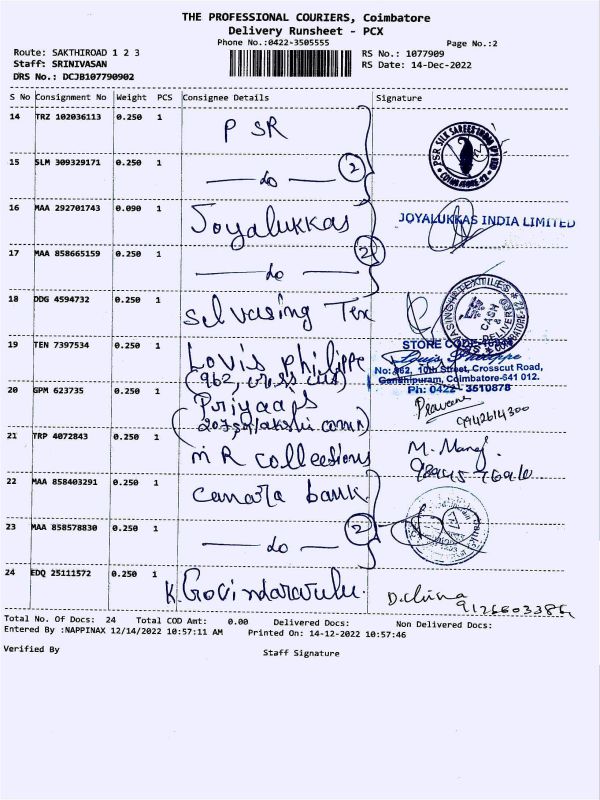 THE PROFESSIONAL COURIERS, Coimbatore
Delivery Runsheet - PCX
Phone No.:0422-3505555
Page No.:2
Route: SAKTHIROAD 1 2 3
RS No.: 1077909
Staff: SRINIVASAN
RS Date: 14-Dec-2022
DRS No.: DCJB107790902
S No Consignment No Weight PCS Consignee Details Signature
14 TRZ 102036113 0.250 1 PSR
PSR SILK SAREES INDIA (P) LTD
15 SLM 309329171 0.250 1 do 2
16 MAA 292701743 0.090 1 Joyalukkas JOYALUKKAS INDIA LIMITED
17 MAA 858665159 0.250 1 do 2
18 DDG 4594732 0.250 1 Selvasing Tex
CASH &
STORE CODE
19 TEN 7397534 0.250 1 Lovis philippe
(962, cross cut)
Louis Philippe
No: 962, 10th Street, Crosscut Road,
Gandhipuram, Coimbatore-641 012.
Ph: 0422 3510878
20 GPM 623735 0.250 1 Priyaaps
Praveen
9942614300
21 TRP 4072843 0.250 1 M R collections
M. Manoj
22 MAA 858403291 0.250 1 canara bank
23 MAA 858578830 0.250 1 do 2
24 EDQ 25111572 0.250 1 K. Govindaravulu.
Total No. Of Docs: 24 Total COD Amt: 0.00 Delivered Docs: Non Delivered Docs:
Entered By :NAPPINAX 12/14/2022 10:57:11 AM Printed On: 14-12-2022 10:57:46
Verified By
Staff Signature